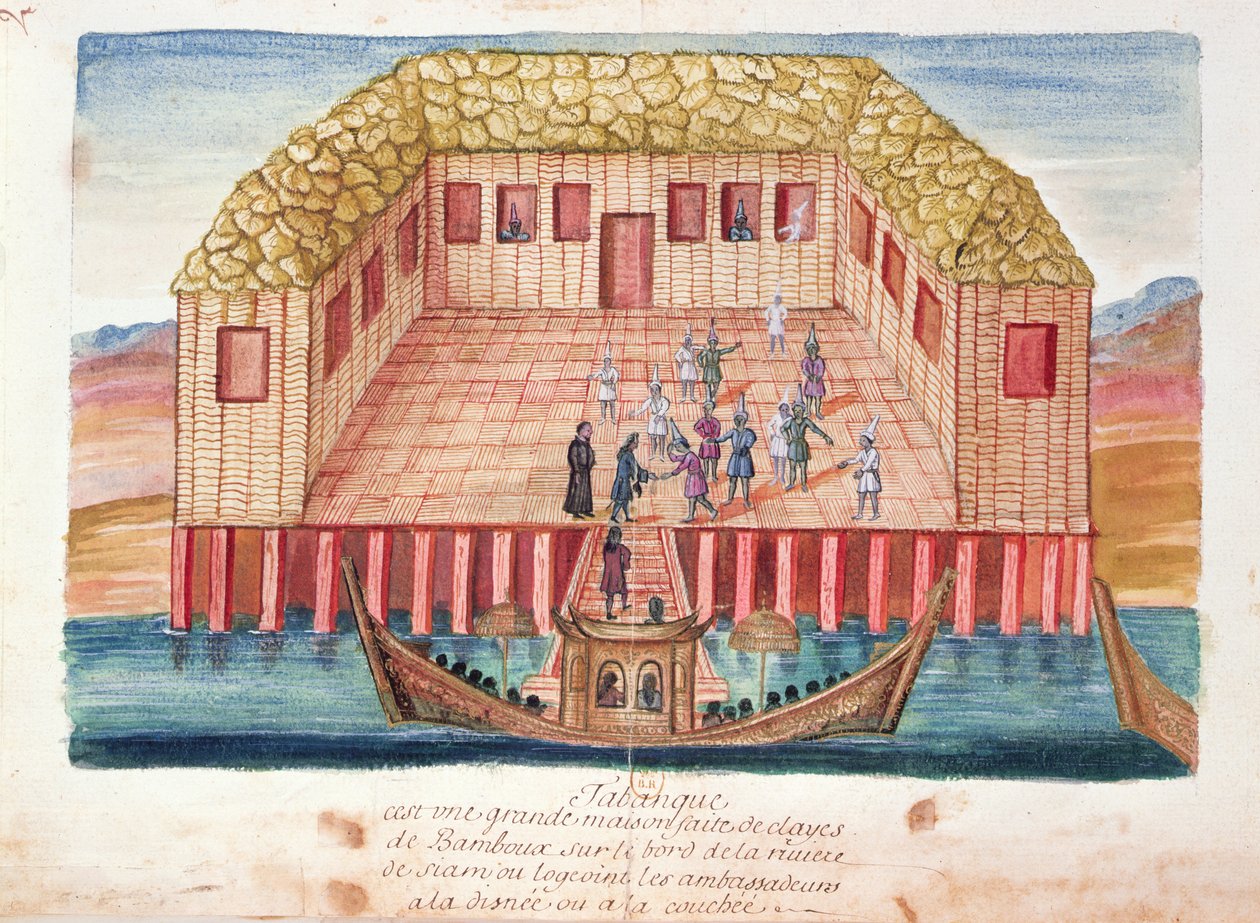 Tabanque
cest vne grande maison faite de clayes
de Bamboux sur le bord de la riviere
de siam ou logeoint les ambassadeurs
a la disnée ou a la couchée
B.R